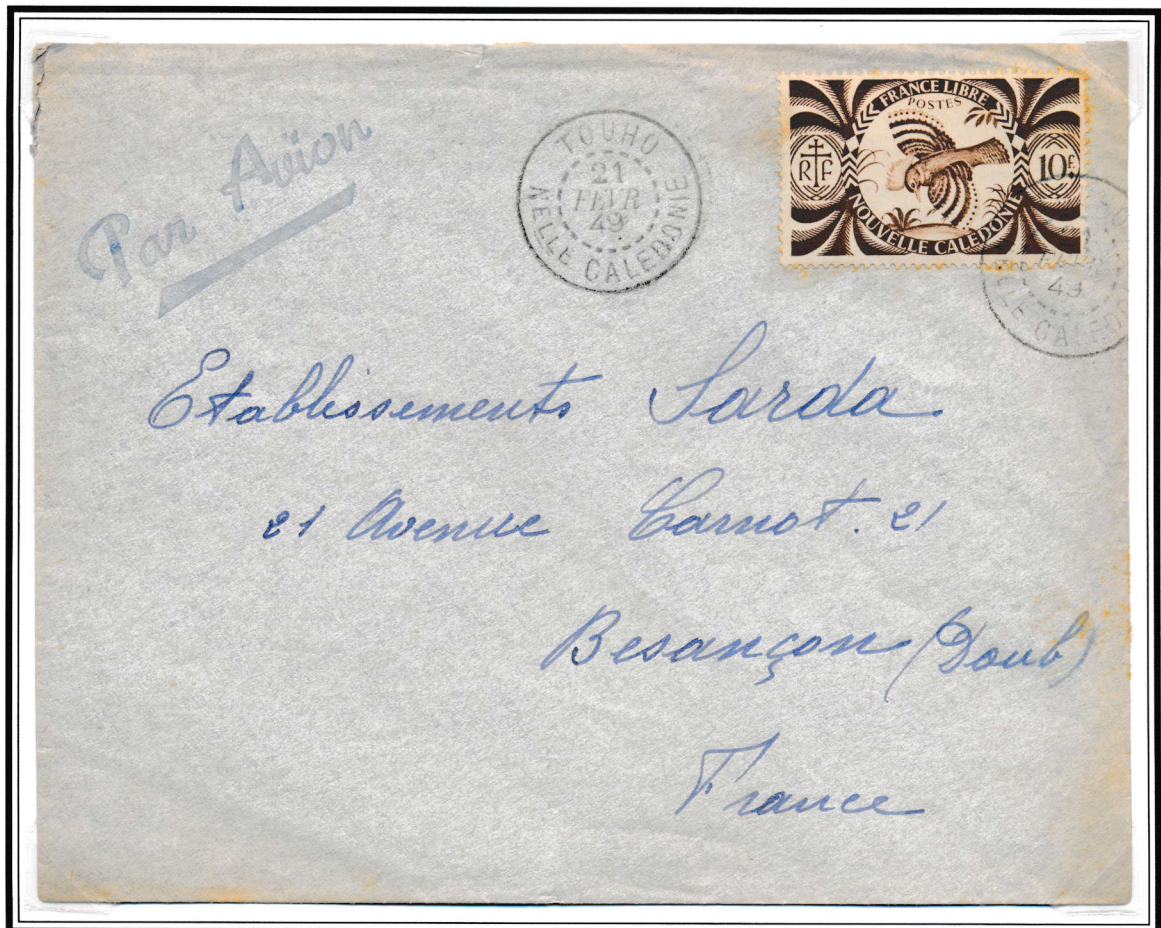 Par Avion
TOUHO
21
FEVR
49
NELLE CALEDONIE
FRANCE LIBRE
POSTES
RF
10F.
NOUVELLE CALÉDONIE
49
LLE CALEDO
Etablissements Sarda
21 Avenue Carnot. 21
Besançon (Doub)
France